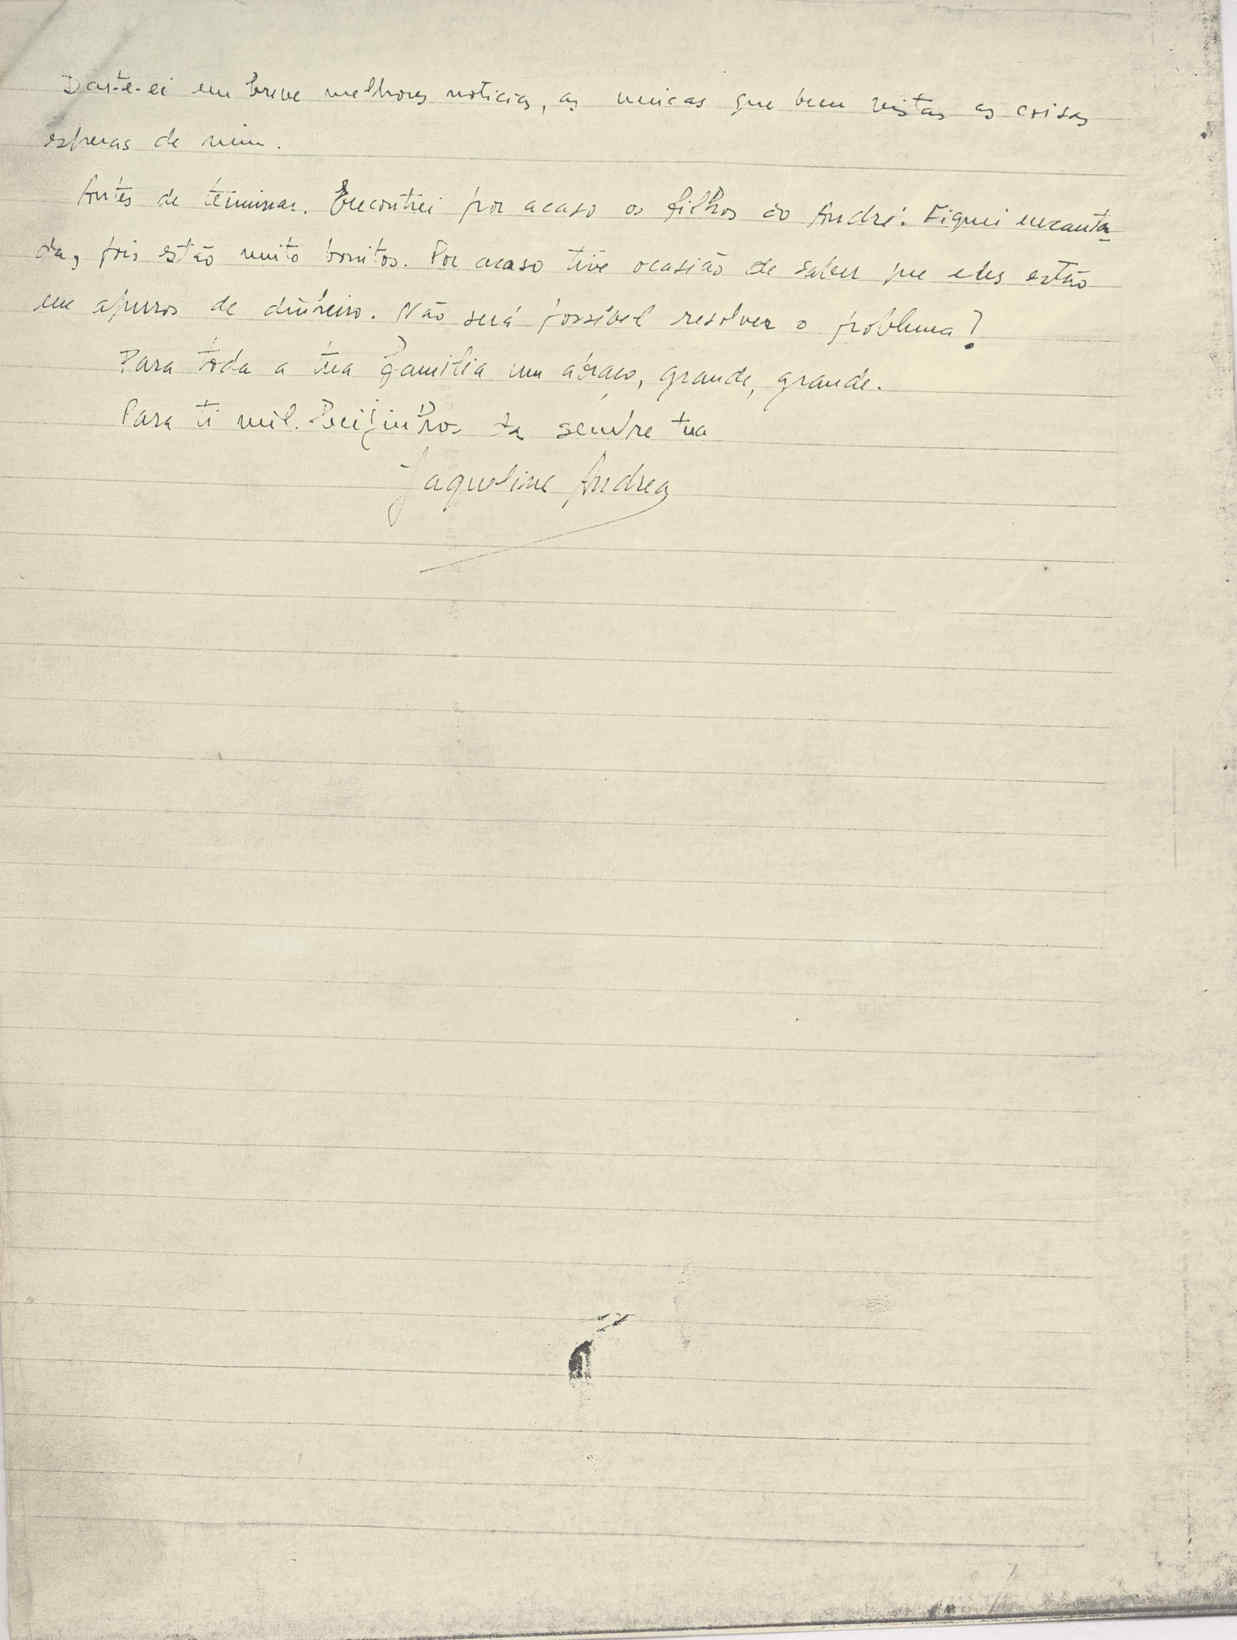 Dar-te-ei em breve melhores noticias, as unicas que bem vistas as coisas
esperas de mim.
Antes de terminar. Encontrei por acaso os filhos do André. Fiquei encanta-
da, pois estão muito bonitos. Por acaso tive ocasião de saber que eles estão
em apuros de dinheiro. Não será possível resolver o problema?
Para toda a tua familia um abraço, grande, grande.
Para ti mil beijinhos da sempre tua
Jaqueline Andrea